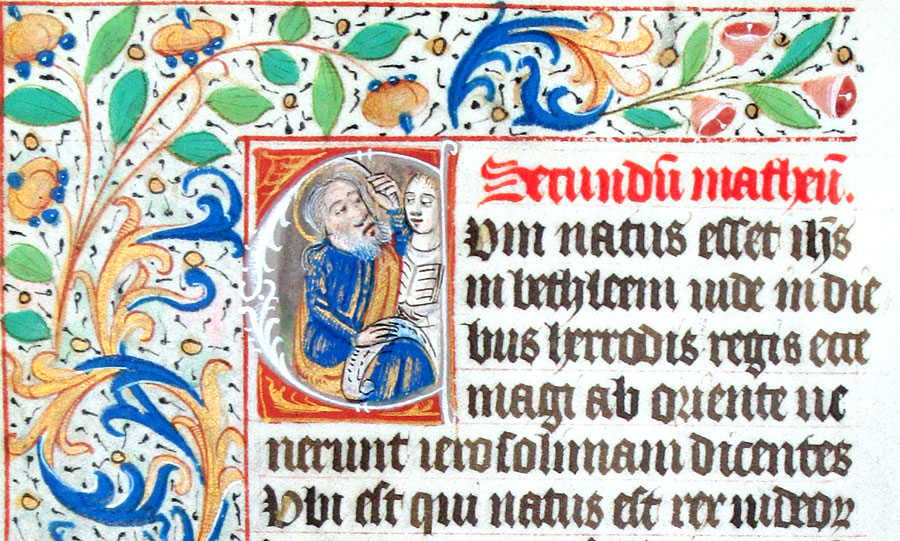 Secundū matheū.
CVm natus esset ih̄s
in bethleem iude in die
bus herrodis regis ecce
magi ab oriente ue
nerunt ierosolimam dicentes
Vbi est qui natus est rex iudeoꝝ